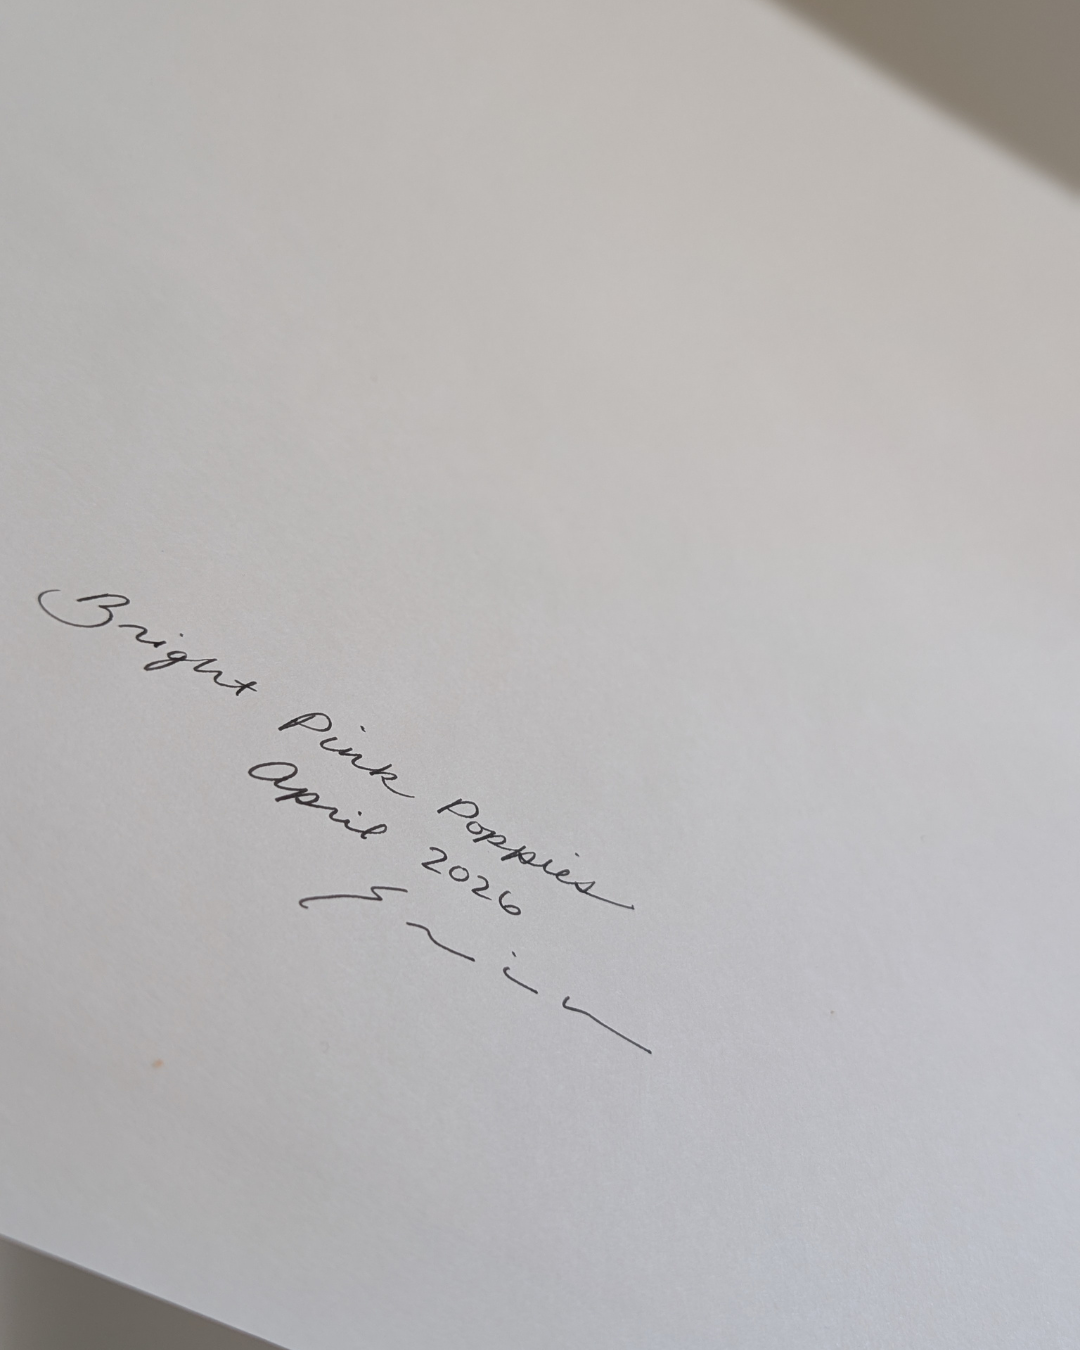 Bright Pink Poppies
April 2026
Erin